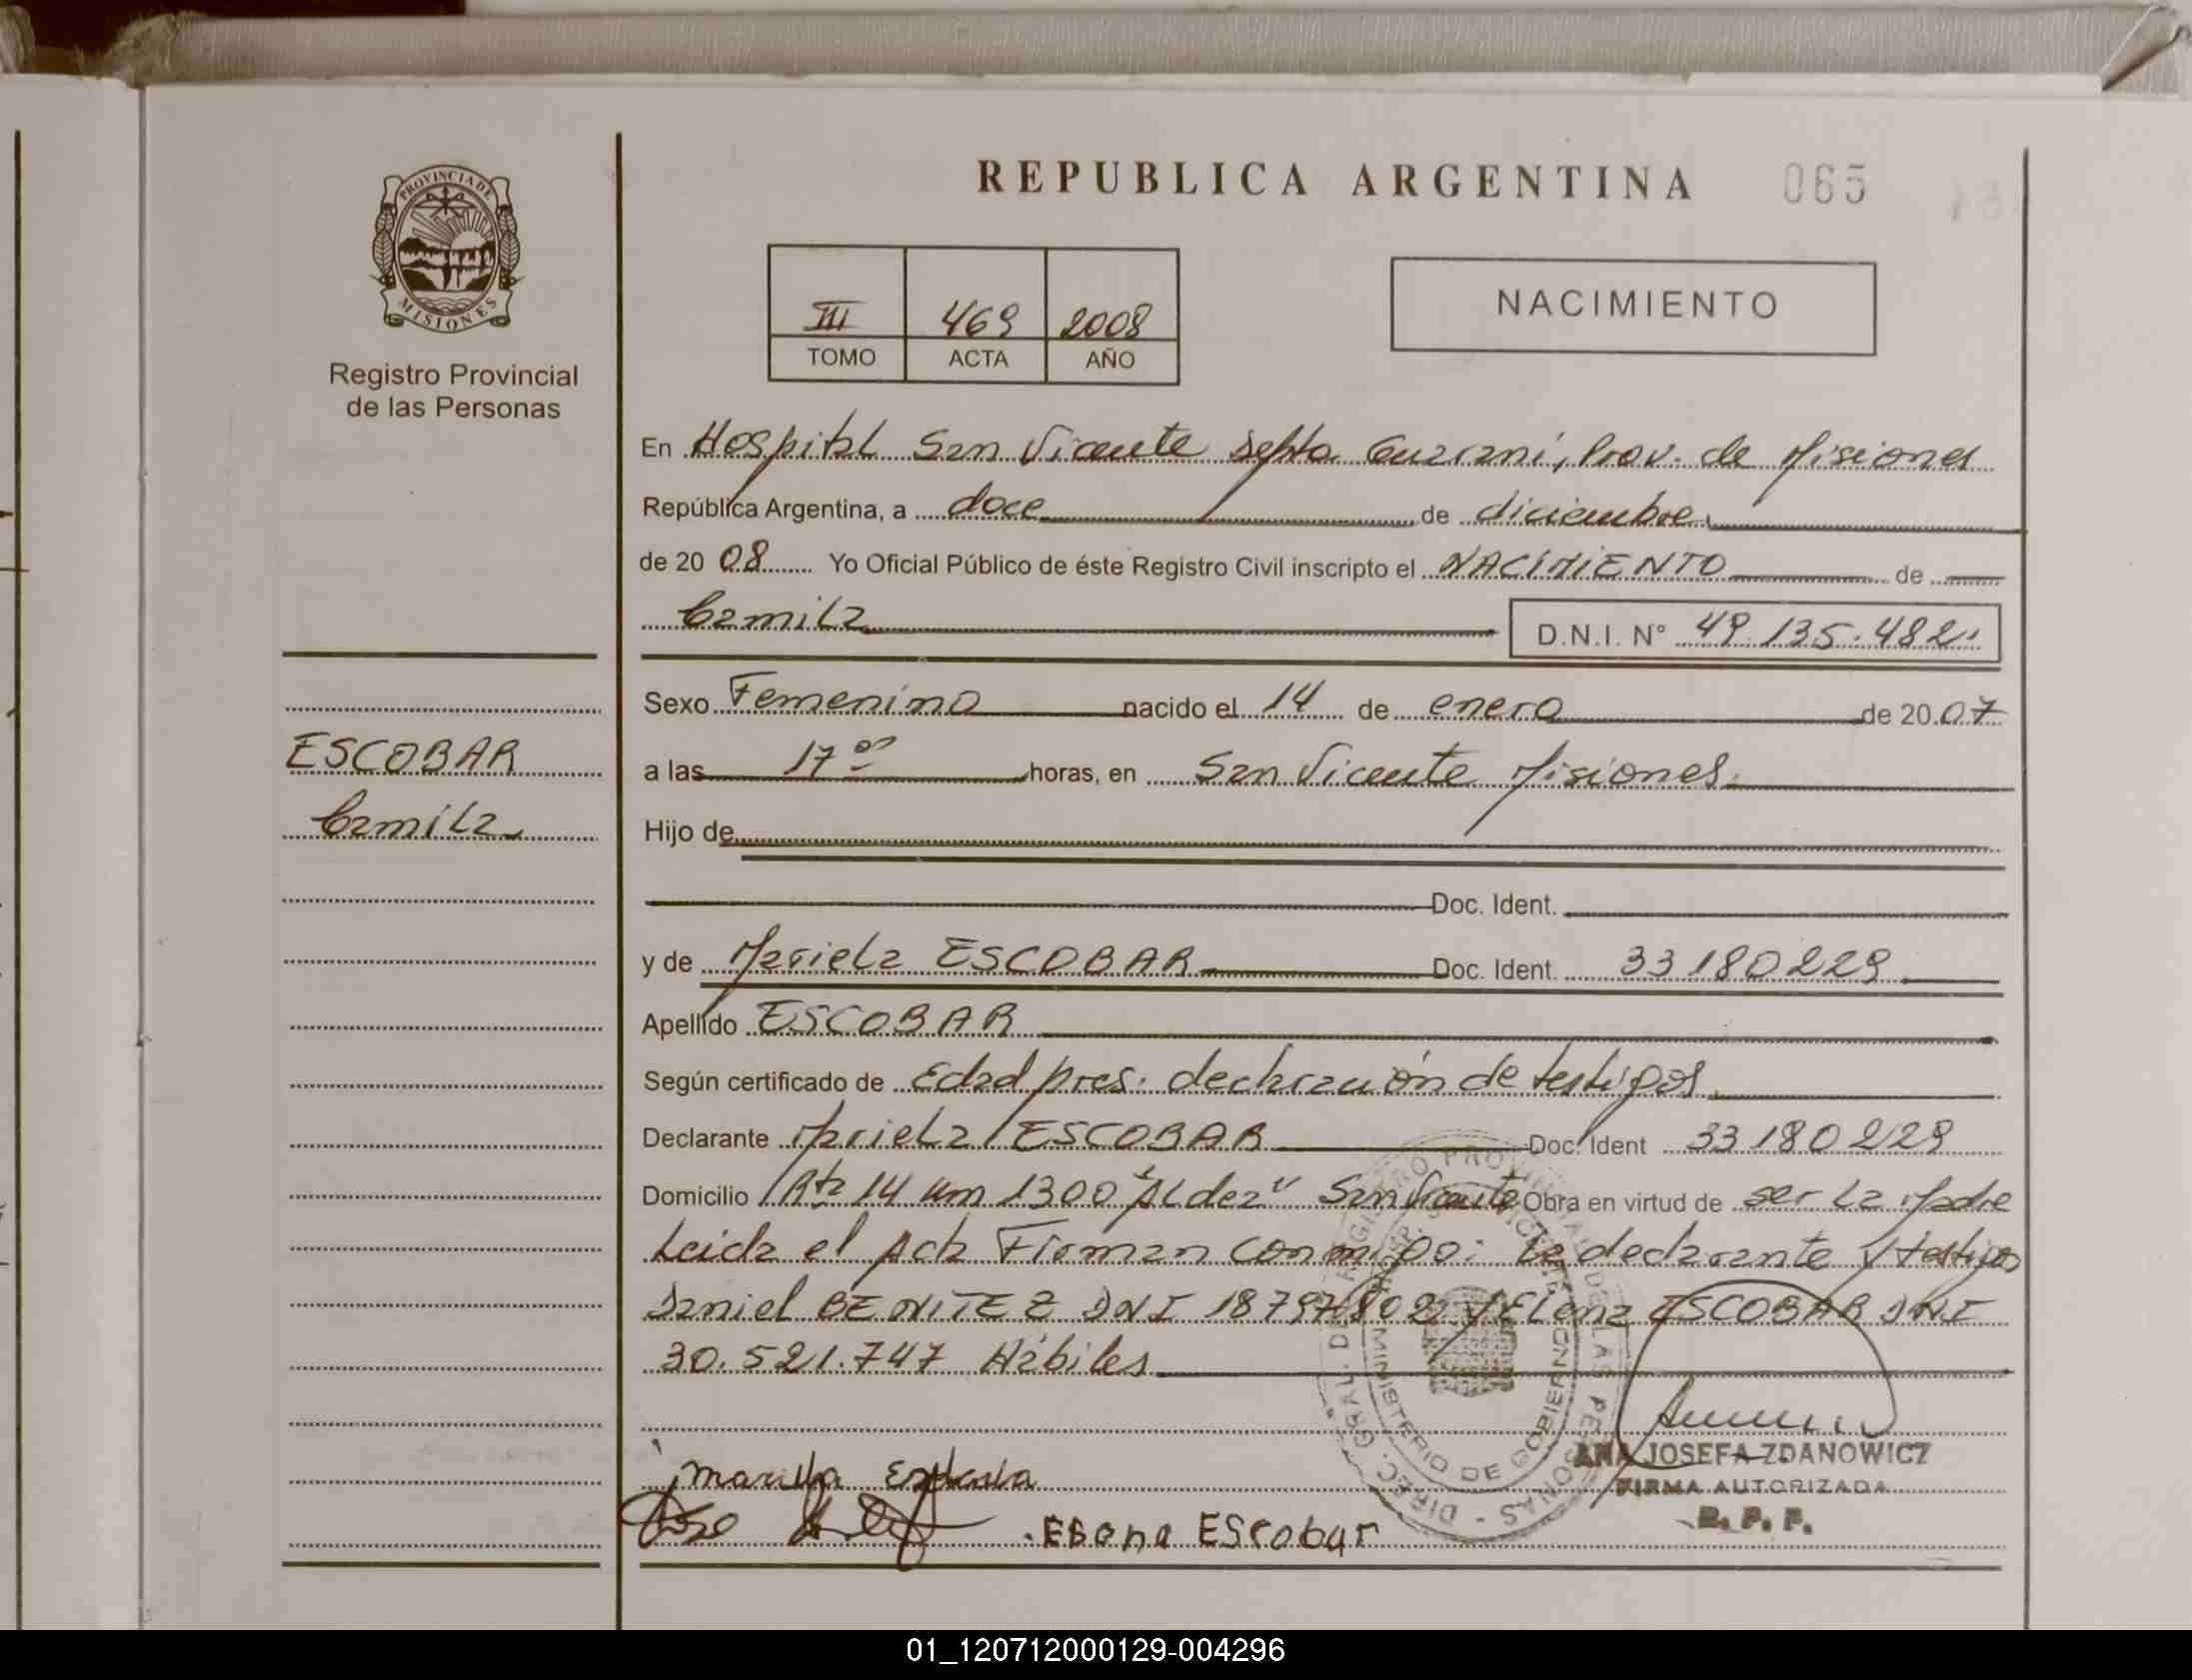 REPUBLICA ARGENTINA 065
PROVINCIA DE
MISIONES
Registro Provincial
de las Personas
III 469 2008
TOMO ACTA AÑO
NACIMIENTO
En Hospital San Vicente Depto Guaraní, Prov. de Misiones
República Argentina, a doce de diciembre
de 20 08 Yo Oficial Público de éste Registro Civil inscripto el NACIMIENTO de
Camila D.N.I. N° 49.135.482.
Sexo Femenino nacido el 14 de enero de 20 07
ESCOBAR
Camila
a las 17 00 horas, en San Vicente Misiones.
Hijo de
Doc. Ident.
y de Mariela ESCOBAR Doc. Ident. 33180229
Apellido ESCOBAR
Según certificado de Edad pres. declaración de testigos
Declarante Mariela ESCOBAR Doc. Ident 33180229
Domicilio Rta 14 km 1300 "Aldea" San Vicente Obra en virtud de ser la Madre
Leida el Acta Firman conmigo: la declarante y testigos
Daniel BENITEZ DNI 18797802 y Elena ESCOBAR DNI
30.521.747 Hábiles
DIREC. GRAL. DEL REGISTRO PROVINCIAL DE LAS PERSONAS
MINISTERIO DE GOBIERNO
ANA JOSEFA ZDANOWICZ
FIRMA AUTORIZADA
R. P. P.
Escobar
01_120712000129-004296